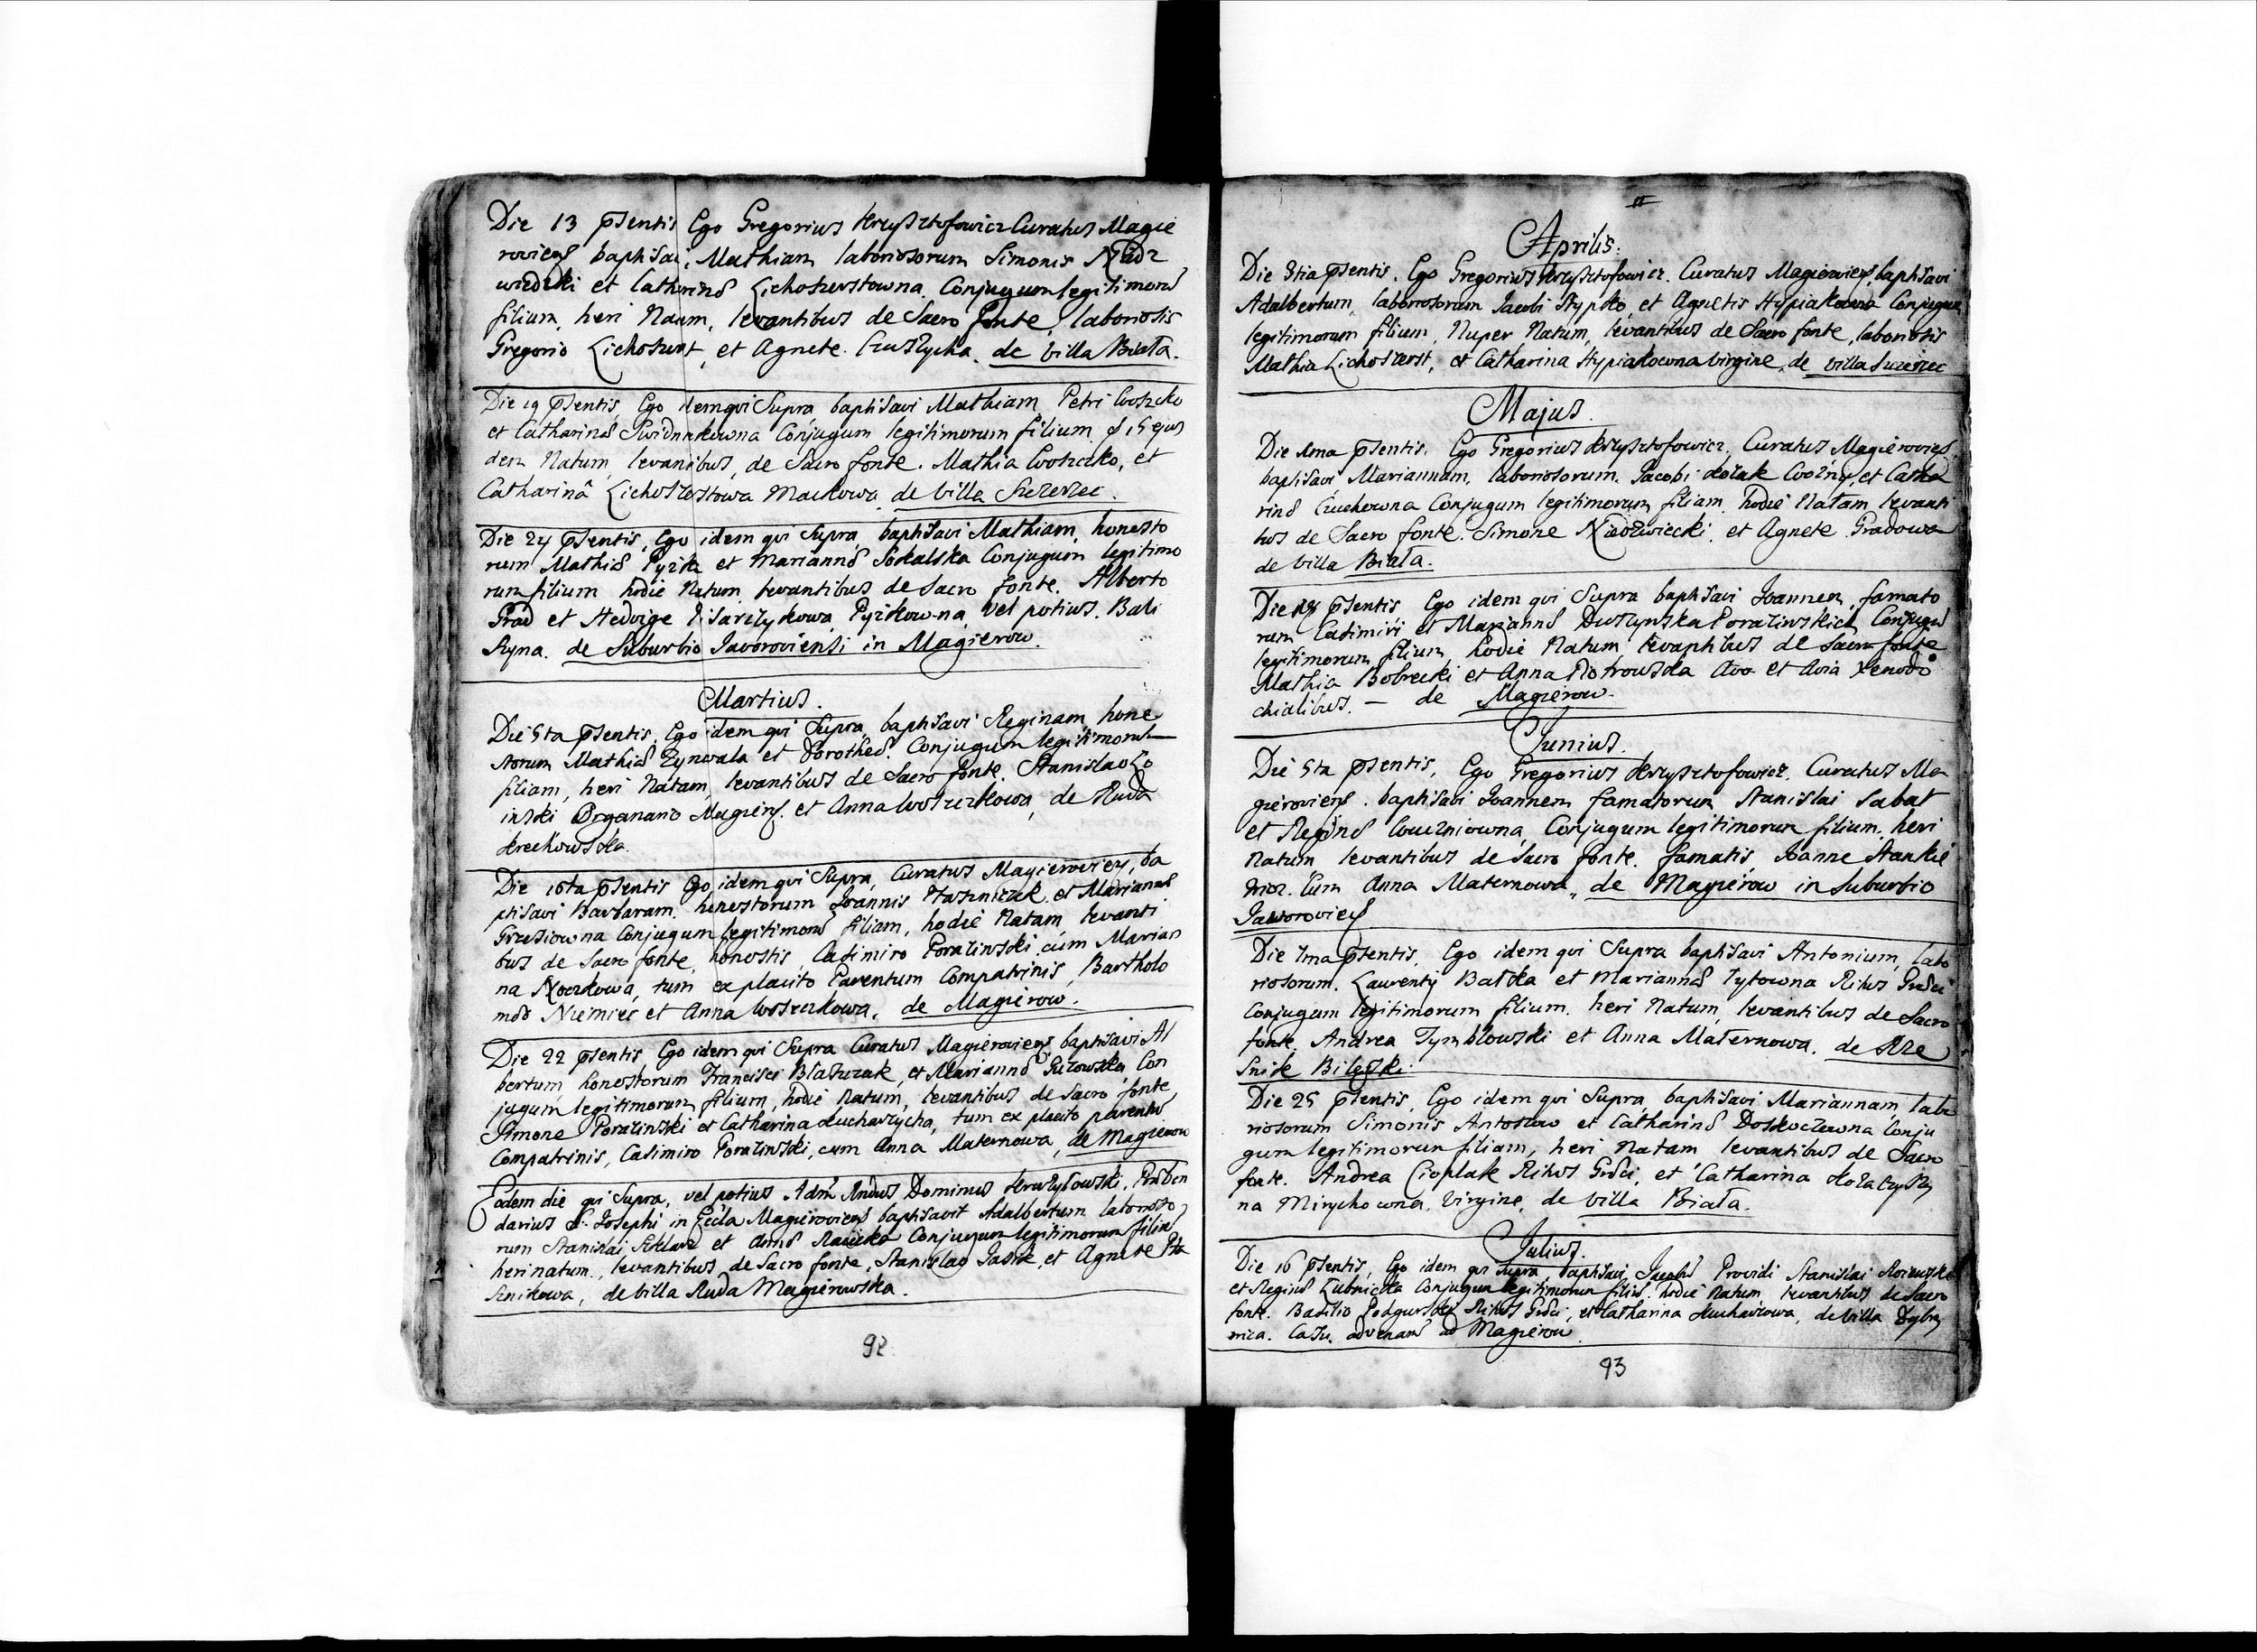 Die 13 p̄sentis Ego Gregorius Krzysztofowicz Curatus Magie
roviens baptisavi Mathiam laboriosorum Simonis Niedz
wiedzki et Catharinæ Lichoszerstowna Conjugum legitimorum
filium, heri Natum, levantibus de Sacro fonte, laboriosis
Gregorio Lichoszerst, et Agnete de villa Biała.
Die 19 p̄sentis, Ego idem qui Supra baptisavi Mathiam Petri Woszczko
et Catharinæ Conjugum legitimorum filium, d 15 ejus
dem Natum, levantibus, de Sacro fonte. Mathia Woszczko, et
Catharinâ Lichoszestowa Mackowa, de villa Szczerzec.
Die 24 p̄sentis, Ego idem qui Supra baptisavi Mathiam, honesto
rum Mathiæ Pyzik et Mariannæ Sokalska Conjugum legitimo
rum filium hodie Natum levantibus de Sacro fonte. Alberto
Grad et Hedvige Pisarzykowa Pyzikowna, vel potius Bali
Ryna. de Suburbio Javoroviensi in Magierow.
Martius.
Die 5ta p̄sentis, Ego idem qui Supra, baptisavi Reginam, hone
storum Mathiæ Zynwala et Dorotheæ Conjugum legitimorum
filiam, heri Natam, levantibus de Sacro fonte. Stanislao Lo
inski Organario Magiers. et Anna Woszczkowa, de Ruda
Krechowska.
Die 16ta p̄sentis Ego idem qui Supra, Curatus Magieroviens, ba
ptisavi Barbaram honestorum Joannis Ptaszniczek et Mariannæ
Grzesiowna Conjugum legitimorum filiam, hodie Natam levanti
bus de Sacro fonte, honestis, Casimiro Porazinski cum Marian
na Noczkowa, tum ex placito Parentum Compatrinis, Bartholo
mæo Niemiec et Anna Woszczkowa, de Magierow.
Die 22 p̄sentis, Ego idem qui Supra Curatus Magieroviens baptisavi Al
bertum, honestorum Francisci Błaszczak, et Mariannæ Guzowska Con
jugum legitimorum filium, hodie Natum, levantibus de Sacro fonte
Simone Porazinski et Catharina Kucharzycha, tum ex placito parentum
Compatrinis, Casimiro Porazinski, cum Anna Maternowa, de Magierow
Eodem die qui Supra, vel potius Adm Rndus Dominus Kruszylowski, Præben
darius S. Josephi in Eccla Magieroviens baptisavit Adalbertum laborioso
rum Stanislai Szklarz et Annæ Conjugum legitimorum filium
heri natum, levantibus, de Sacro fonte, Stanislao Jasik, et Agnete Pta
sznikowa, de villa Ruda Magierowska.
92
Aprilis.
Die 3tia p̄sentis. Ego Gregorius Krzysztofowicz. Curatus Magieroviens, baptisavi
Adalbertum, laboriosorum Jacobi Hypko, et Agnetis Hypiakowna Conjugum
legitimorum filium, Nuper Natum, levantibus de Sacro fonte, laboriosis
Mathia Lichoszerst, et Catharina Hypiakowna Virgine, de villa Szczerzec
Majus.
Die 1ma p̄sentis. Ego Gregorius Krzysztofowicz, Curatus Magieroviens,
baptisavi Mariannam, laboriosorum. Jacobi Kozak Woźny, et Catha
rinæ Conjugum legitimorum filiam, hodie Natam, levanti
bus de Sacro fonte. Simone Niedzwiecki, et Agnete Gradowa
de villa Biała.
Die p̄sentis Ego idem qui Supra baptisavi Joannem, famato
rum Casimiri et Mariannæ Duszynska Porazinskich Conjugum
legitimorum filium hodie Natum levantibus de Sacro fonte
Mathia Bobrecki et Anna Piotrowska Avo et Avia Xenodo
chialibus. — de Magierow.
Junius.
Die 5ta p̄sentis, Ego Gregorius Krzysztofowicz, Curatus Ma
gieroviens. baptisavi Joannem famatorum Stanislai Sabat
et Reginæ Conjugum legitimorum filium. heri
Natum levantibus de Sacro fonte. famatis, Joanne Stankie
wicz. Cum Anna Maternowa, de Magierow in Suburbio
Jaworoviens
Die 7ma p̄sentis. Ego idem qui Supra baptisavi Antonium, labo
riosorum. Laurentij Batka et Mariannæ Tytowna Ritus Græci
Conjugum legitimorum filium. heri Natum, levantibus de Sacro
fonte, Andrea Tymblowski et Anna Maternowa. de Rze
Die 25 p̄sentis, Ego idem qui Supra, baptisavi Mariannam, labo
riosorum Simonis Antosow et Catharinæ Doskoczowna Conju
gum legitimorum filiam, heri Natam levantibus de Sacro
fonte. Andrea Cioplak Ritus Græci, et Catharina
na Virgine, de Villa Biała.
Julius.
Die 16 p̄sentis, Ego idem qui Supra baptisavi, Providi Stanislai
et Reginæ Conjugum legitimorum filium. hodie Natum, levantibus de Sacro
fonte. Basilio Podgurski Ritus Græci, et Catharina Kucharzowa, de Villa
Casu ad Magierow.
93